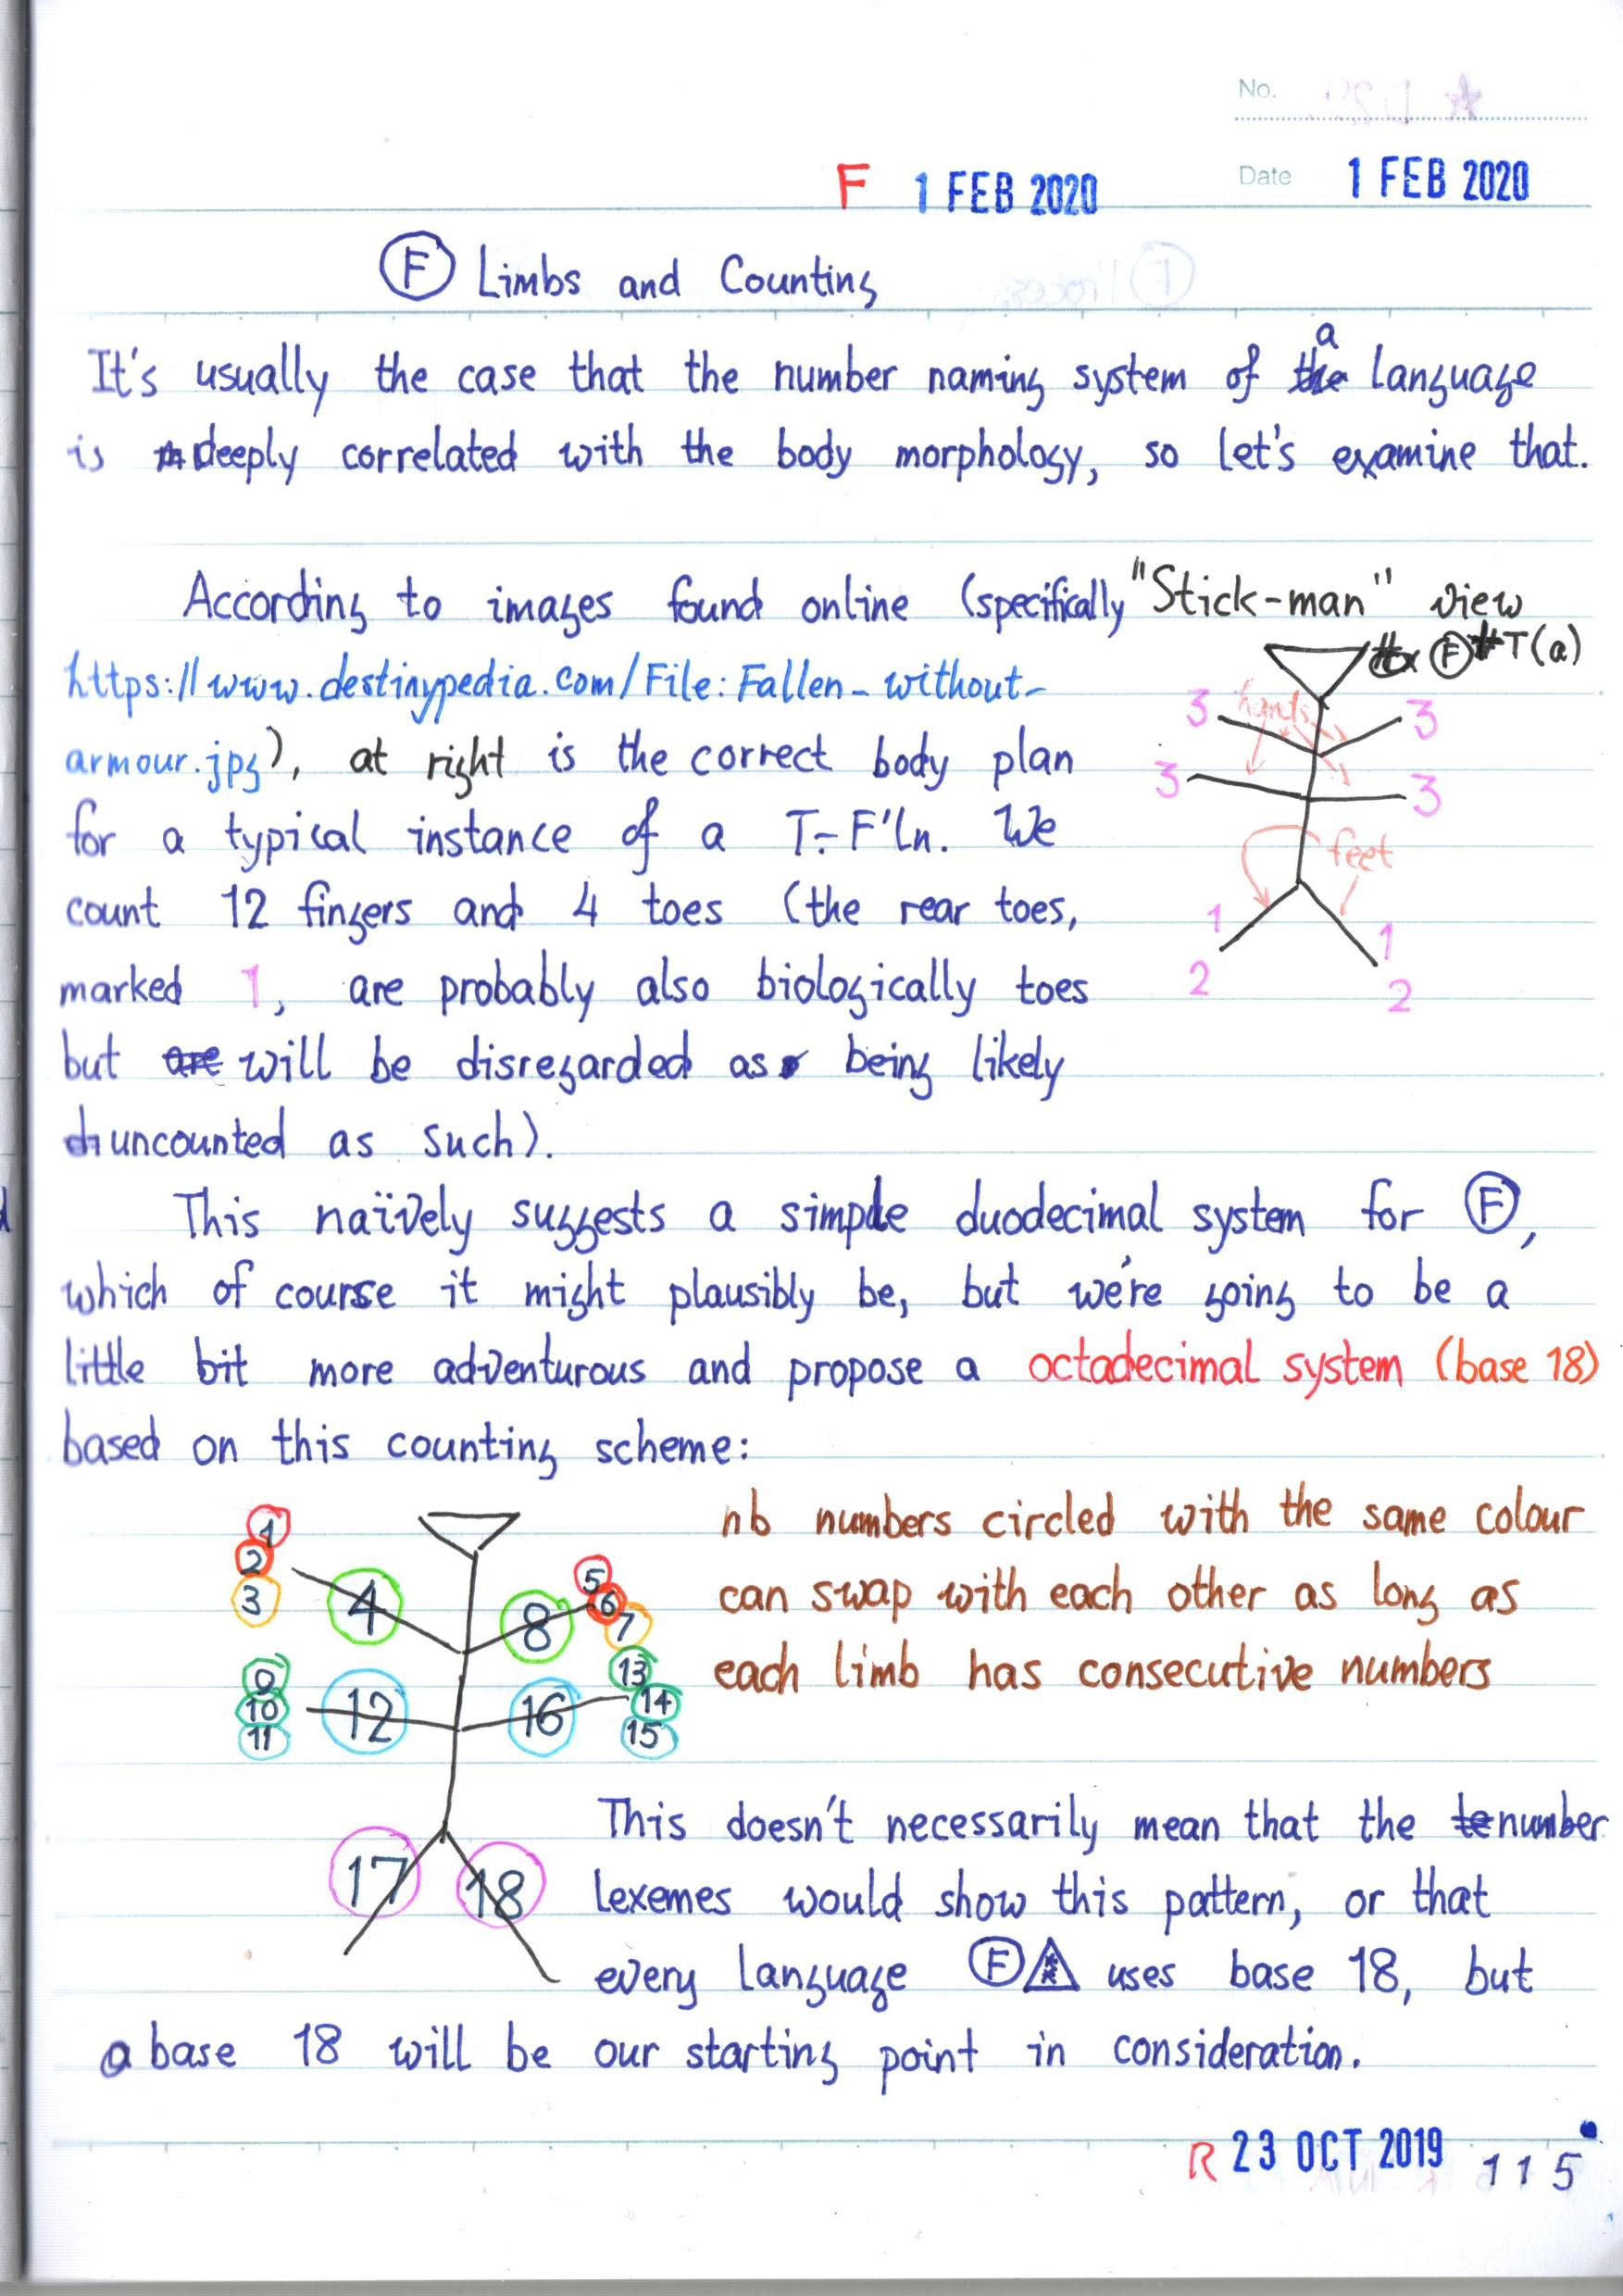 No.
F 1 FEB 2020 Date 1 FEB 2020
F Limbs and Counting
a
It's usually the case that the number naming system of the language
is deeply correlated with the body morphology, so let's examine that.
According to images found online (specifically "Stick-man" view
F #T(a)
https://www.destinypedia.com/File:Fallen_without_
armour.jpg), at right is the correct body plan
for a typical instance of a T÷F'ln. We
count 12 fingers and 4 toes (the rear toes,
marked 1, are probably also biologically toes
but are will be disregarded as being likely
uncounted as such).
3 hands 3
3 3
feet
1 1
2 2
This naïvely suggests a simple duodecimal system for F,
which of course it might plausibly be, but we're going to be a
little bit more adventurous and propose a octadecimal system (base 18)
based on this counting scheme:
1
2
3
4
8
5
6
7
9
10
11
12
16
13
14
15
17
18
nb numbers circled with the same colour
can swap with each other as long as
each limb has consecutive numbers
This doesn't necessarily mean that the te number
lexemes would show this pattern, or that
every language F uses base 18, but
a base 18 will be our starting point in consideration.
R 23 OCT 2019 115